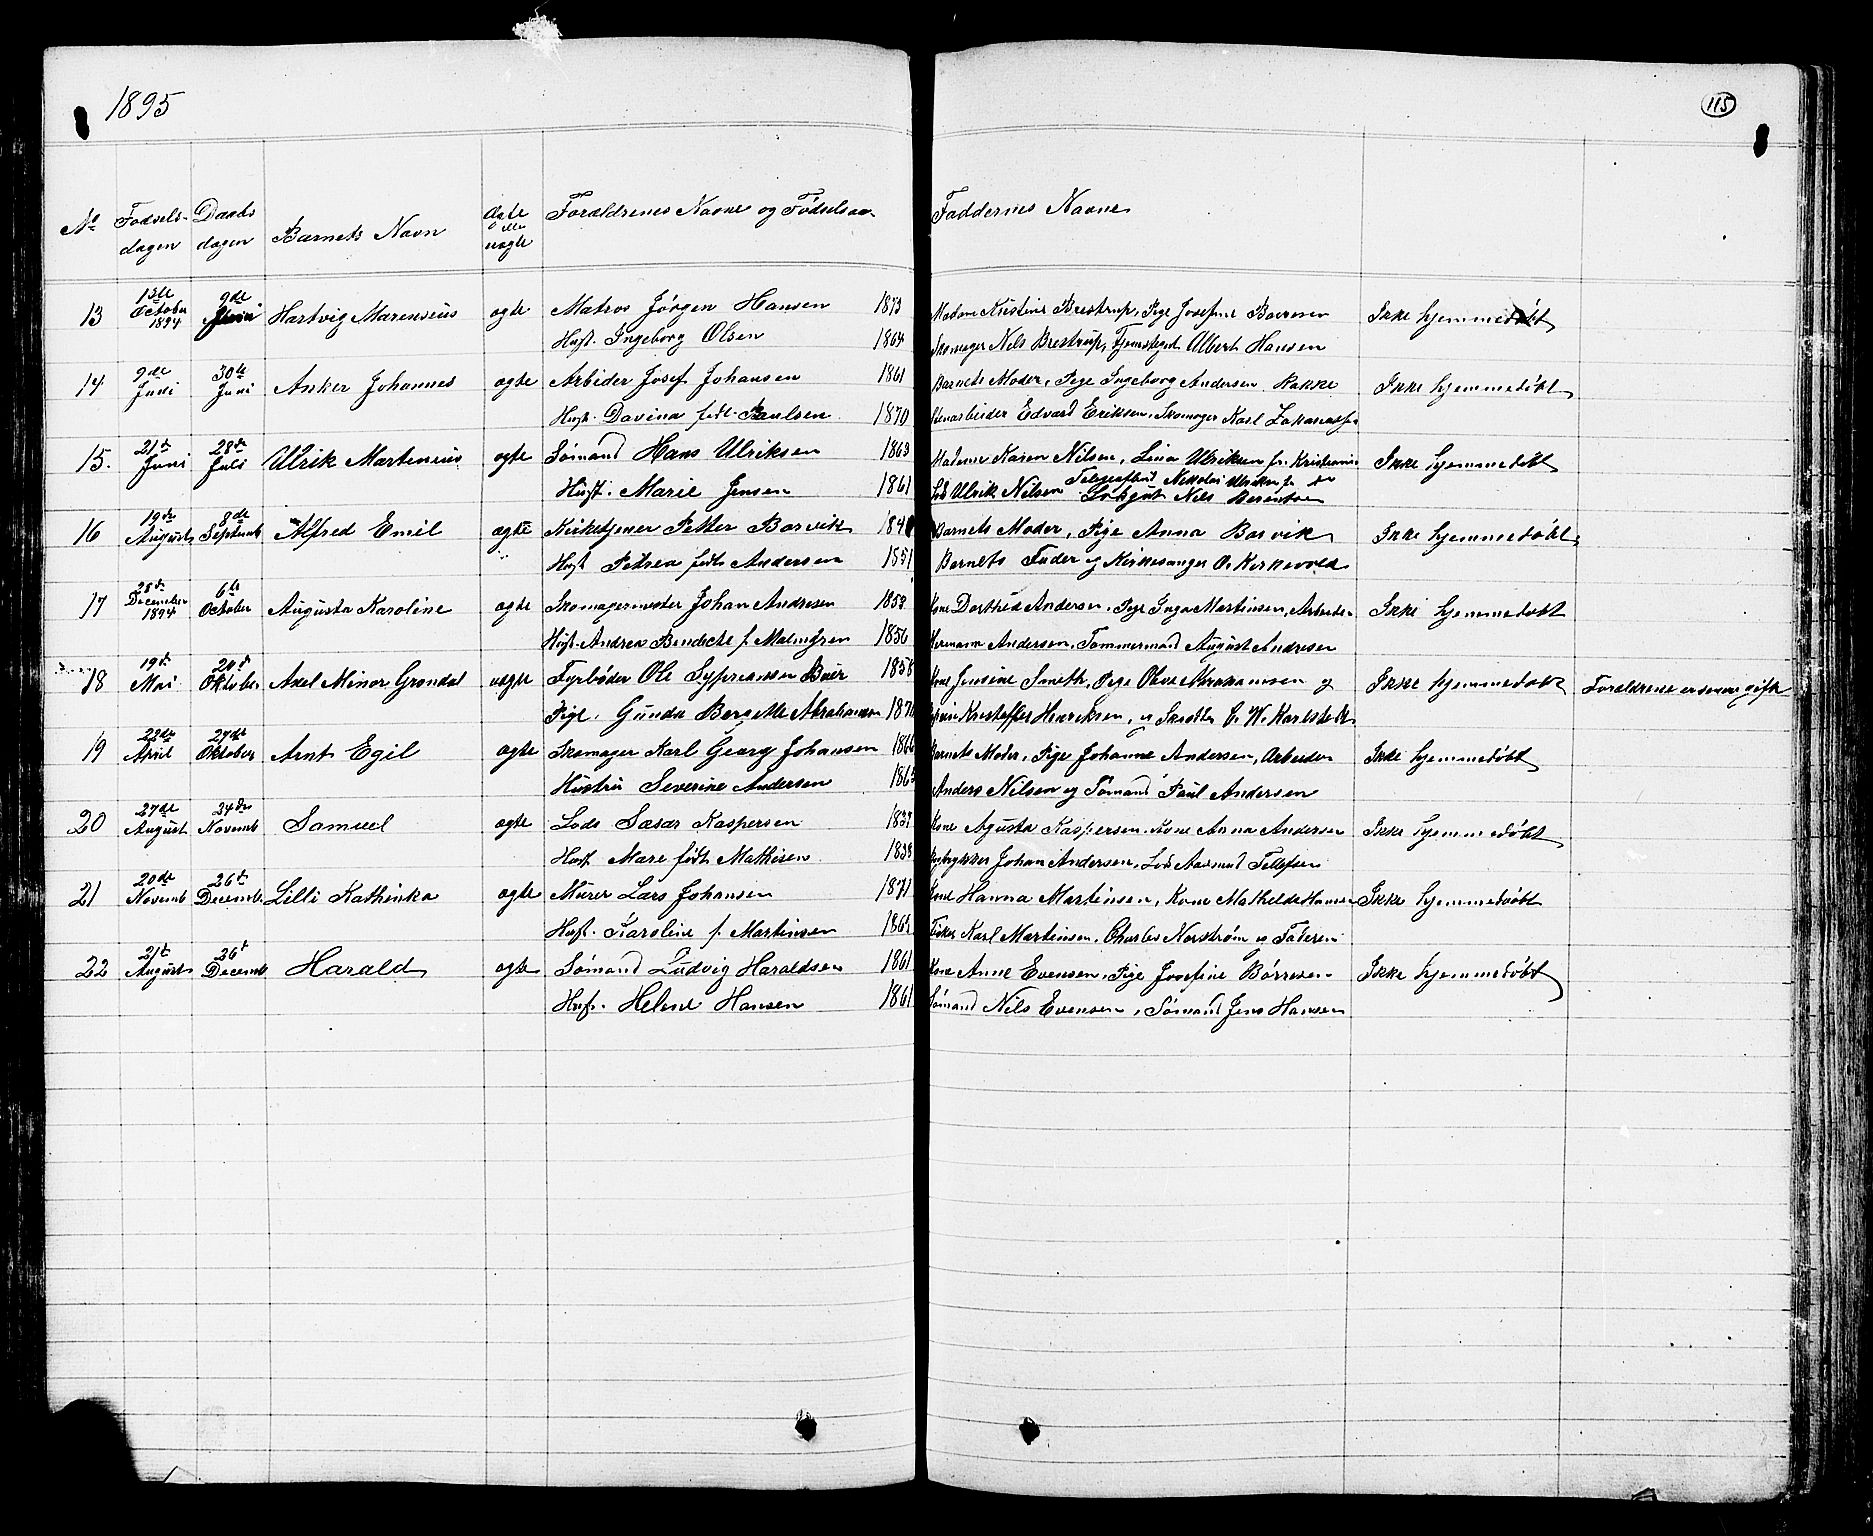 1895
115
No Fodsels- dagen Daabs dagen Barnets Navn ægte eller uægte Forældrenes Navne og Fødselsaar Faddernes Navne
13 13de October 1894 9de Juni Hartvig Marensius ægte Matros Jørgen Hansen 1873 Madame Kristine Brestrup, Pige Josefine Ikke hjemmedøbt
Hust. Ingeborg Olsen 1864 Skomager Nels Brestrup, Albert Hansen
14 9de Juni 30te Juni Anker Johannes ægte Arbeider Josef Johansen 1861 Barnets Moder, Pige Ingeborg Andersen Bakke Ikke hjemmedøbt
Hust. Davina født Paulsen 1870 Stenarbeider Edvard Eriksen, Skomager Karl
15. 21de Juni 28de Juli Ulrik Martenius ægte Sømand Hans Ulriksen 1863 Madame Karen Nilsen, Lina Ulriksen fr. Kristiania Ikke hjemmedøbt
Hust. Marie Jensen 1861 Lods Ulrik Nilsen Nils Berentsen
16 19de August 8de Septemb Alfred Emil ægte Kirketjener Petter Borvik Barnets Moder, Pige Anna Borvik Ikke hjemmedøbt
Hust Petrea født Andersen 1851 Barnets Fader og Kirkesanger O. Kirkevold
17 28de December 1894 6te October Augusta Karoline ægte Skomagermester Johan Andresen 1853 Kone Dorthea Andersen, Pige Inga Martinsen, Arbeider Ikke hjemmedøbt
Hust. Andrea Bendicte f. Malmgren 1856 Hermann Andersen, Tømmermand August Andresen
18 19de Mai 20de Oktober Axel Minor Grøndal uægte Fyrbøder Ole Syprianssen Buer 1858 Kone Jensine Smeth, Pige Olava Abrahamsen og Ikke hjemmedøbt Forældrene er senere gift
Pige, Gunda Bergitte Abrahamsen Kristoffer Henriksen, og C. W. Karlstedt
19 22de April 27de Oktober Arnt Egil ægte Skomager Karl Georg Johansen 1866 Barnets Moder, Pige Johanne Andersen, Arbeider Ikke hjemmedøbt
Hustru Severine Andersen 1865 Anders Nilsen og Sømand Paul Andersen
20 27de August 24de Novemb Samuel ægte Lods Kaspersen 1837 Kone Agusta Kaspersen, Kone Anna Andersen Ikke hjemmedøbt
Hust Mare født Mathisen 1838 Johan Andersen, Lods Aasmund Tellefsen
21 20de Novemb 26de Decemb. Lilli Kathinka ægte Murer Lars Johansen 1871 Kone Hanna Martinsen, Kone Mathilde Hansen Ikke hjemmedøbt
Hust. Karoline f. Martinsen Fisker Karl Martinsen, Charles Norstrøm og Faderen
22 21de August 26de Decemb Harald ægte Sømand Ludvig Haraldsen 1861 Kone Anne Evensen, Pige Josefine Børresen Ikke hjemmedøbt
Hust. Helene Hansen 1861 Sømand Nils Evensen, Sømand Jens Hansen